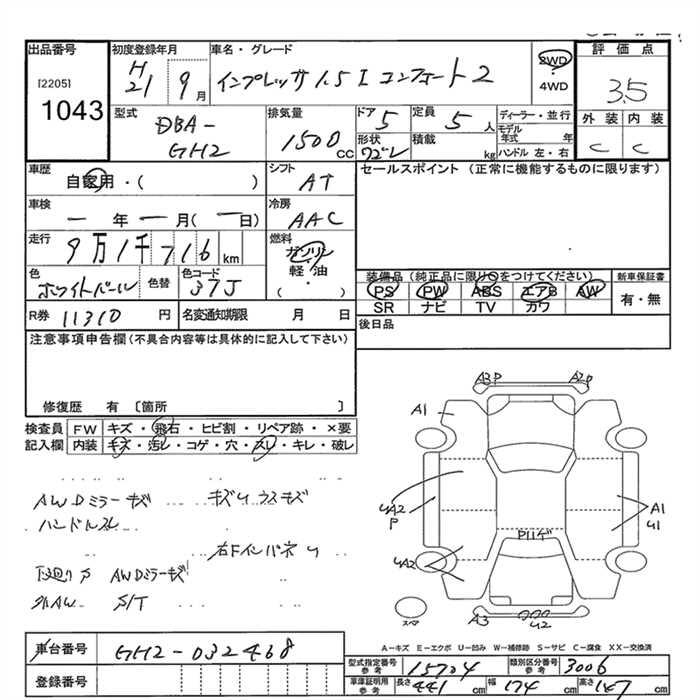 出品番号
[2205]
1043
初度登録年月
H21 9月
車名・グレード
インプレッサ 1.5 I コンフォート2
2WD
4WD
評価点
3.5
外装 内装
C C
型式
DBA-
GH2
排気量
1500 CC
ドア 5
形状 5ドア
定員 5 人
積載 kg
ディーラー・並行
モデル年式 年
ハンドル 左・右
車歴
自家用・( )
シフト
AT
車検
一 年 一 月 (一日)
冷房
AAC
走行
9万1千716 km
燃料
ガソリン
軽・油
・
( )
色
ホワイトパール
色替
色コード
37J
R券 11310 円
名変通知期限 月 日
セールスポイント (正常に機能するものに限ります)
装備品 (純正品に限り○をつけてください)
PS PW ABS エアB AW
SR ナビ TV カワ
新車保証書
有・無
後日品
注意事項申告欄 (不具合内容等は具体的に記入して下さい)
修復歴 有 〔箇所 〕
検査員 FW キズ・飛石・ヒビ割・リペア跡・×要
記入欄 内装 キズ・汚レ・コゲ・穴・スレ・キレ・破レ
AWDミラーキズ キズUウスキズ
ハンドルスレ
右FインパネU
下廻りサ AWDミラーキズ
外AW S/T
A3P A2P
A1
UA2
P
A1
U1
P11ゲ
UA2
A3 U2
スペア
A－キズ E－エクボ U－凹み W－補修跡 S－サビ C－腐食 XX－交換済
車台番号 GH2-032468
登録番号
型式指定番号
参考
15704
類別区分番号
参考
3006
車庫証明用
参考
長さ 441 cm 幅 174 cm 高さ 147 cm